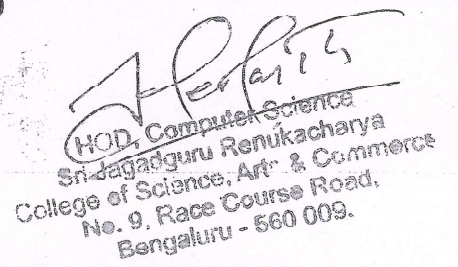 HOD, Computer Science
Sri Jagadguru Renukacharya
College of Science, Arts & Commerce
No. 9, Race Course Road,
Bengaluru - 560 009.